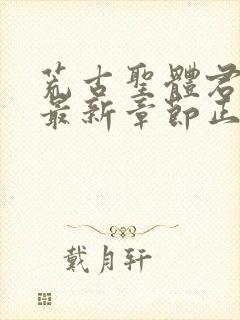 荒古聖體君
最新章節正
戴月轩